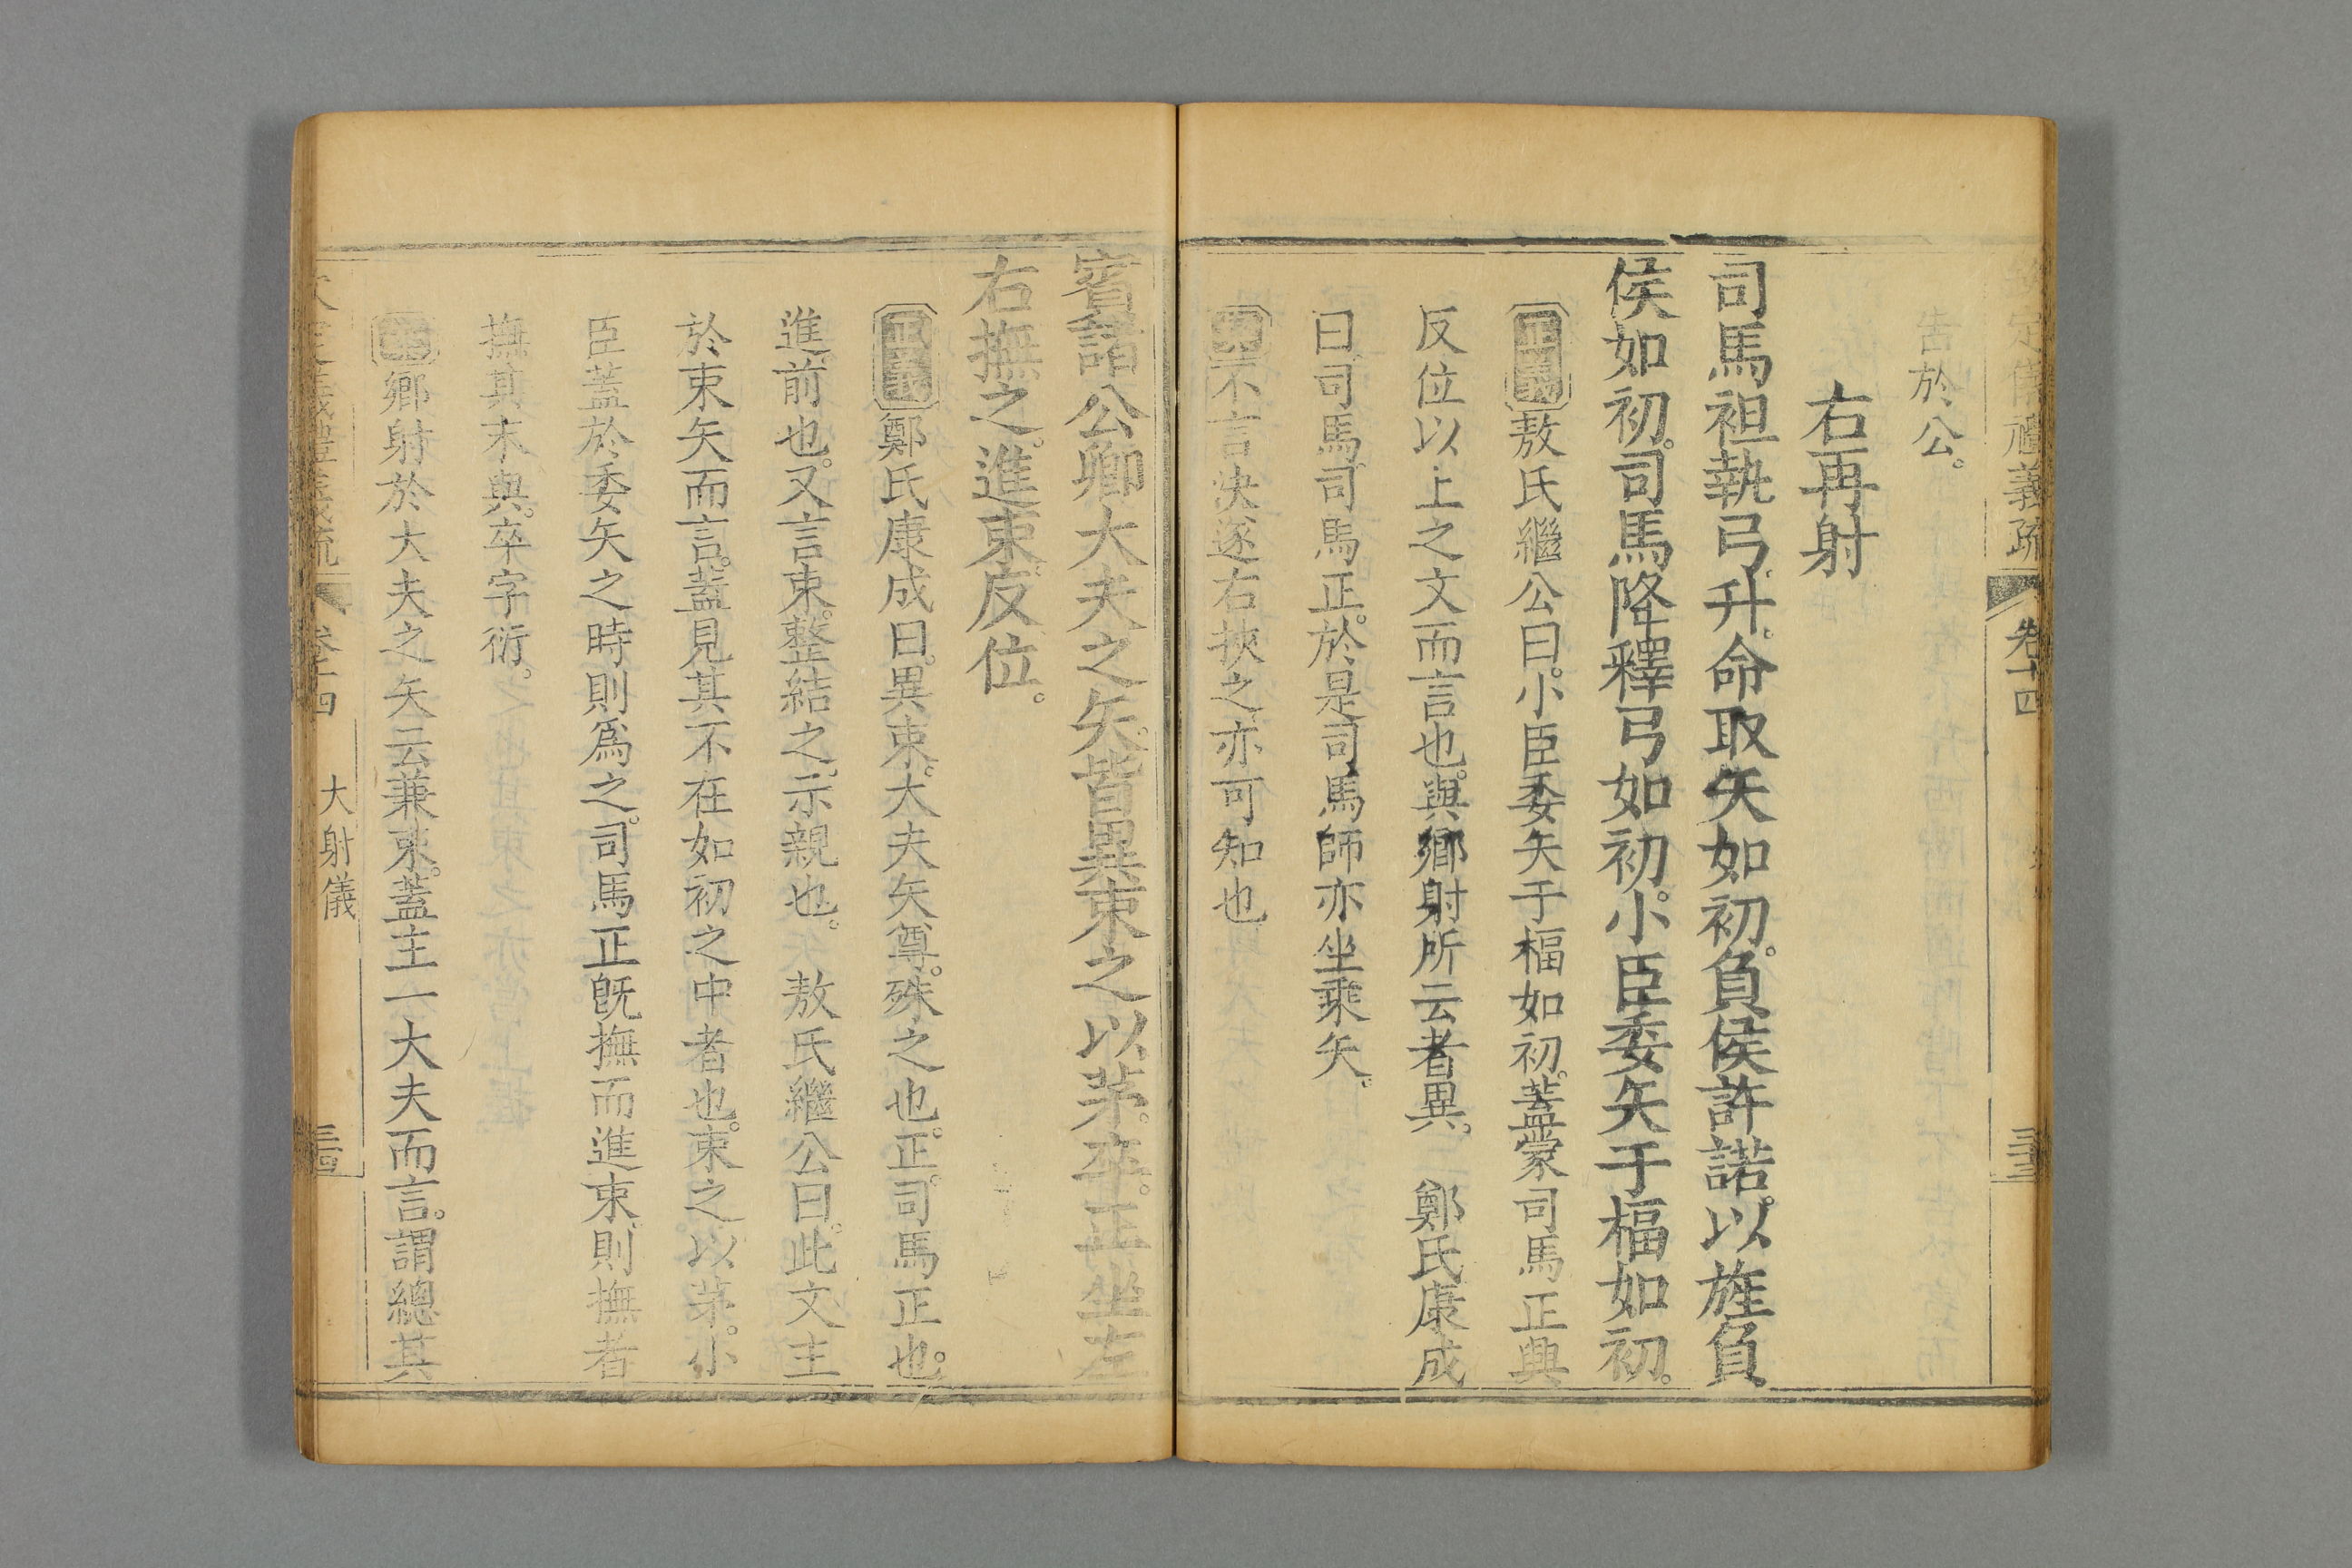 定儀禮義疏 卷十四
告於公。
右再射
司馬袒執弓。升。命取矢如初。負侯許諾。以旌負
侯如初。司馬降釋弓如初。小臣委矢于楅如初。
正義敖氏繼公曰。小臣委矢于楅如初。蓋蒙司馬正與
反位以上之文而言也。與鄉射所云者異。 鄭氏康成
曰。司馬司馬正。於是司馬師亦坐乘矢。
不言決遂右挾之亦可知也
賓諸公卿大夫之矢。皆異束之以茅。卒。正坐。左
右撫之。進束。反位。
正義鄭氏康成曰。異束。大夫矢尊。殊之也。正。司馬正也。
進前也。又言束。整結之。示親也。 敖氏繼公曰。此文主
於束矢而言。蓋見其不在如初之中者也。束之以茅。小
臣蓋於委矢之時則爲之。司馬正旣撫而進束。則撫者
撫其末與。卒字衍。
鄉射於大夫之矢云兼束。蓋主一大夫而言。謂總其
義禮義疏 卷十四 大射儀